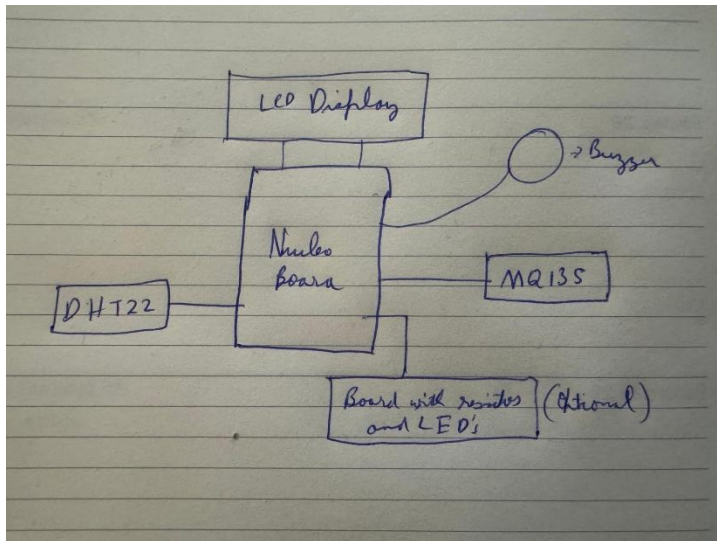 LCD Display
→ Buzzer
Nucleo
Board
MQ135
DHT22
Board with resistors (Optional)
and LED's